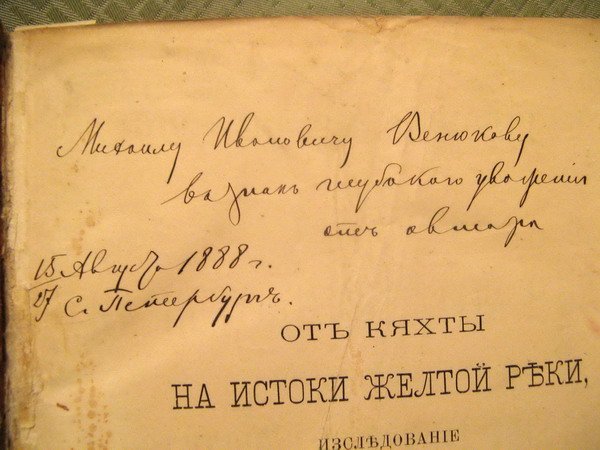 Михаилу Ивановичу Венюкову
въ знакъ глубокаго уваженія
отъ автора
15/27 Августа 1888 г.
С. Петербургъ.
ОТЪ КЯХТЫ
НА ИСТОКИ ЖЕЛТОЙ РѢКИ,
ИЗСЛѢДОВАНІЕ